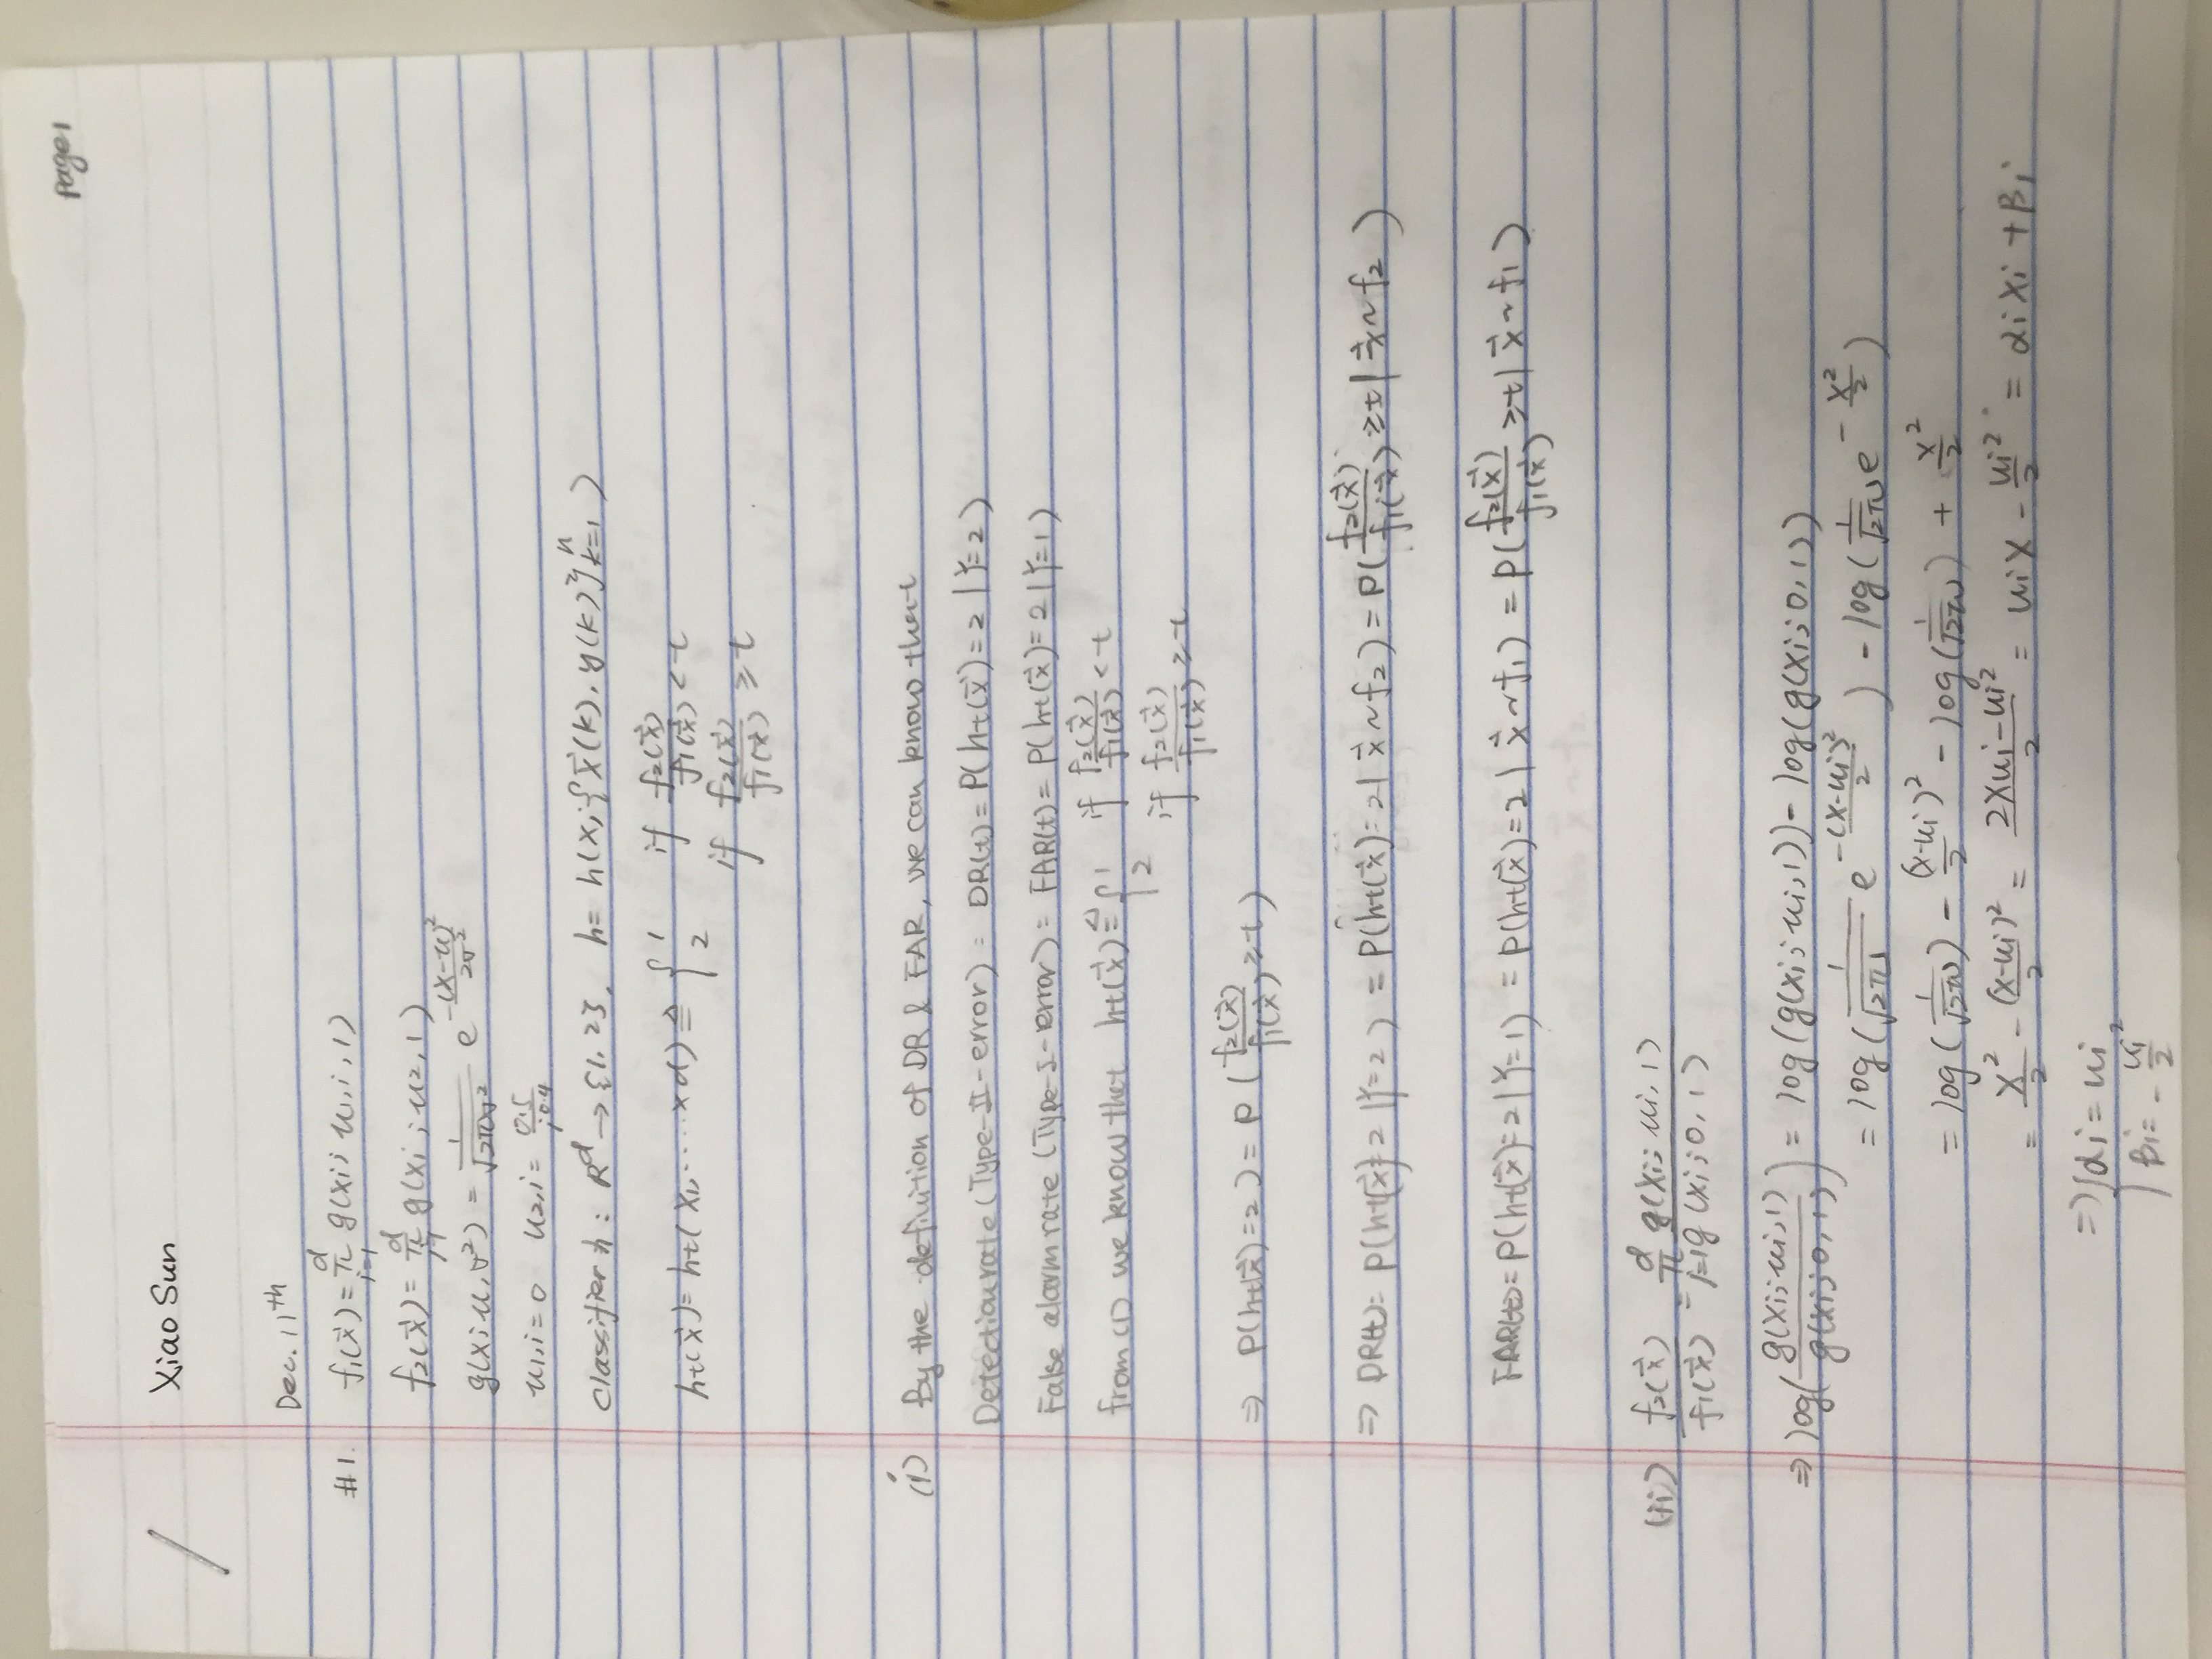 Page 1
Xiao Sun
Dec. 11th
#1. f₁(x⃗) = π_{i=1}^{d} g(xi; u₁,i, 1)
f₂(x⃗) = π_{i=1}^{d} g(xi; u₂, 1)
g(x; u, σ²) = 1/√(2πσ²) e^{-(x-u)²/2σ²}
u₁,i = 0 u₂,i = 0.5/i^{0.4}
classifier h : R^d → {1, 2}, h = h(x, {x⃗(k), y(k)}_{k=1}^{n})
ht(x⃗) = ht(x₁, ..... xd) ≜ { 1 if f₂(x⃗)/f₁(x⃗) < t
2 if f₂(x⃗)/f₁(x⃗) ≥ t
(i) By the definition of DR & FAR, we can know that
Detection rate (Type-II-error) = DR(t) = P(ht(x⃗) = 2 | Y=2)
False alarm rate (Type-I-error) = FAR(t) = P(ht(x⃗) = 2 | Y=1)
from (1) we know that ht(x⃗) ≜ { 1 if f₂(x⃗)/f₁(x⃗) < t
2 if f₂(x⃗)/f₁(x⃗) ≥ t
⇒ P(ht(x⃗) = 2) = P(f₂(x⃗)/f₁(x⃗) ≥ t)
⇒ DR(t) = P(ht(x⃗) = 2 | Y=2) = P(ht(x⃗) = 2 | x⃗ ~ f₂) = P(f₂(x⃗)/f₁(x⃗) ≥ t | x⃗ ~ f₂)
FAR(t) = P(ht(x⃗) = 2 | Y=1) = P(ht(x⃗) = 2 | x⃗ ~ f₁) = P(f₂(x⃗)/f₁(x⃗) ≥ t | x⃗ ~ f₁)
(ii) f₂(x⃗)/f₁(x⃗) = π_{i=1}^{d} g(xi; ui, 1)/g(xi; 0, 1)
⇒ log(g(xi; ui, 1)/g(xi; 0, 1)) = log(g(xi; ui, 1)) - log(g(xi; 0, 1))
= log(1/√2π e^{-(x-ui)²/2}) - log(1/√2π e^{-x²/2})
= log(1/√2π) - (x-ui)²/2 - log(1/√2π) + x²/2
= x²/2 - (x-ui)²/2 = (2xui - ui²)/2 = uix - ui²/2 = αixi + βi
⇒ { αi = ui
βi = - ui²/2